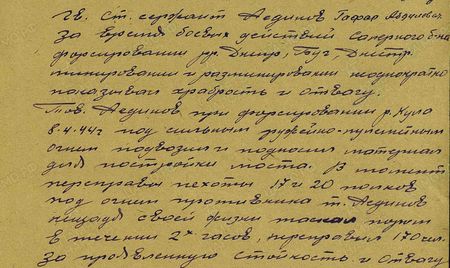 Гв. ст. сержант Аединов Гафар Абдулович
за время боевых действий Саперного б-на
форсировании рр. Днепр, Буг, Днестр
минировании и разминировании неоднократно
показывал храбрость и отвагу.
Тов. Аединов при форсировании р. Кула
8.4.44г под сильным ружейно-пулеметным
огнем подвозил и подносил материал
для постройки моста. В момент
переправы пехоты 17 и 20 полков
под огнем противника т. Аединов
нещадя своей жизни таскал паром
в течении 2х часов, переправил 170 чел.
За проявленную стойкость и отвагу